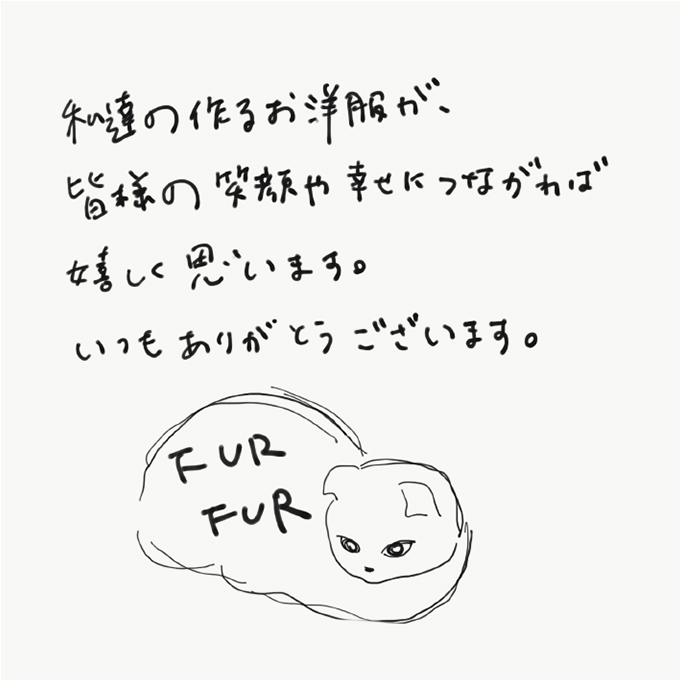 私達の作るお洋服が、
皆様の笑顔や幸せにつながれば
嬉しく思います。
いつもありがとうございます。
FUR
FUR